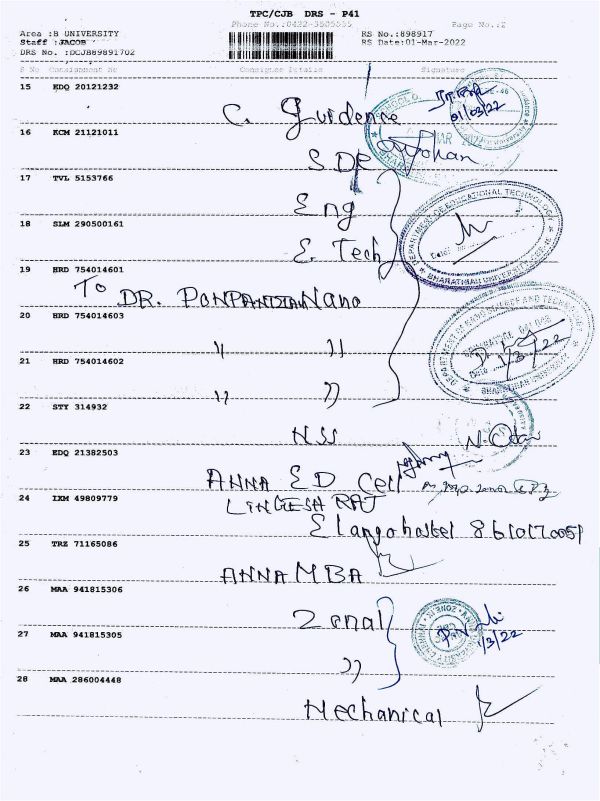 TPC/CJB DRS - P41
Phone No.:0422-3505555 Page No.:2
Area :B UNIVERSITY RS No.:898917
Staff :JACOB RS Date:01-Mar-2022
DRS No. :DCJB89891702
S No Consignment No Consignee Details Signature
15 EDQ 20121232
C. Guidence 01/03/22
16 KCM 21121011
SDE
17 TVL 5153766
Eng
18 SLM 290500161
E. Tech
DEPARTMENT OF EDUCATIONAL TECHNOLOGY
BHARATHIAR UNIVERSITY
19 HRD 754014601
To DR. PONPANDIAN Nano
20 HRD 754014603
" "
1/3/22
BHARATHIAR UNIVERSITY
21 HRD 754014602
" "
22 STY 314932
NSS
23 EDQ 21382503
ANNA ED Cell
24 IXM 49809779
LINGESH RAJ
Elango hostel
25 TRZ 71165086
ANNA MBA
26 MAA 941815306
Zonal
1/3/22
27 MAA 941815305
"
28 MAA 286004448
Mechanical